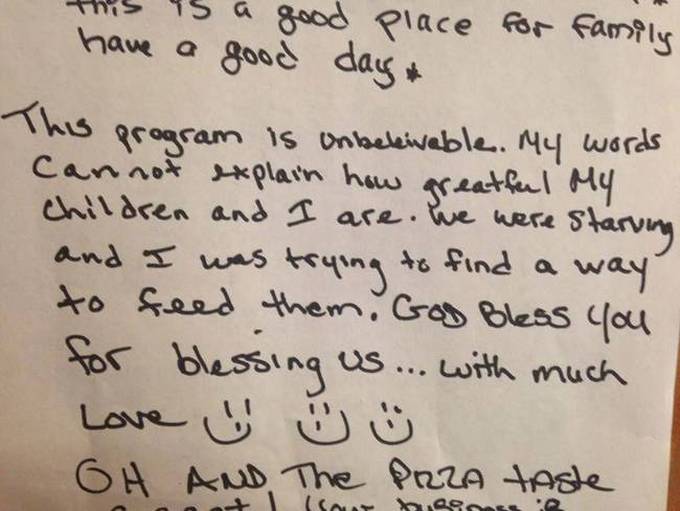 this is a good place for family
have a good day *
This program is unbeleivable. My words
Cannot explain how greatful My
children and I are. We were Starving
and I was trying to find a way
to feed them. GOD Bless You
for blessing us ... with much
Love
OH AND The PIZZA tAste